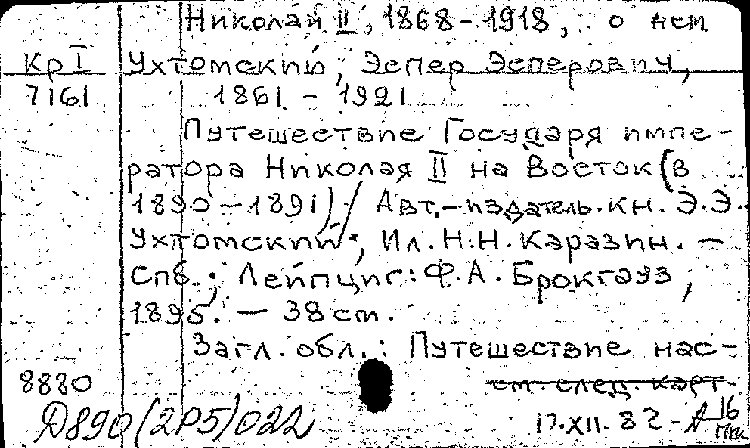 Николай II, 1868-1918, о нем
Кр I Ухтомский, Эспер Эсперович,
7161 1861 - 1921
Путешествие Государя импе-
ратора Николая II на Восток (в
1890-1891) / Авт.-издатель.кн. Э.Э.
Ухтомский; Ил. Н.Н. Каразин. -
Спб.; Лейпциг: Ф.А. Брокгауз,
1895. - 38 cm.
Загл. обл.: Путешествие нас-
8880 см след карт
Д890(2Р5)022 17.XII.82 - А 16